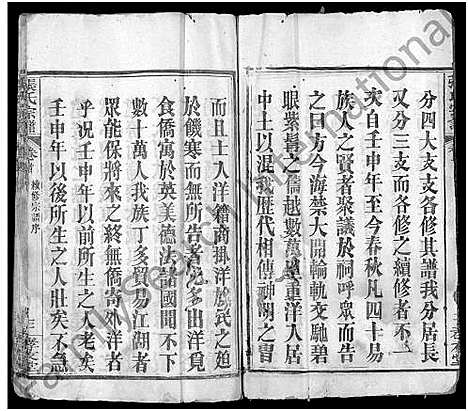 分四大支支各修其譜我分居長
又分三支而各修之續修者不一
次自壬申年至今春秋凡四十易
族人之賢者聚議於祠呼眾而告
之曰方今海禁大開輪軌交馳碧
眼紫鬚之儔越數萬重洋入居
中土以混我歷代相傳神湖之冑
而且士入洋籍商掛洋旂民之廹
於饑寒而無所告者尤多出洋覓
食僑寓於英美德法諸國聞不下
數十萬人我族丁多貿易江湖者
眾能保將來之終無僑寄外洋者
乎況壬申年以前所生之人老矣
壬申年以後所生之人壯矣不急
張氏宗譜
卷首
續修宗譜序